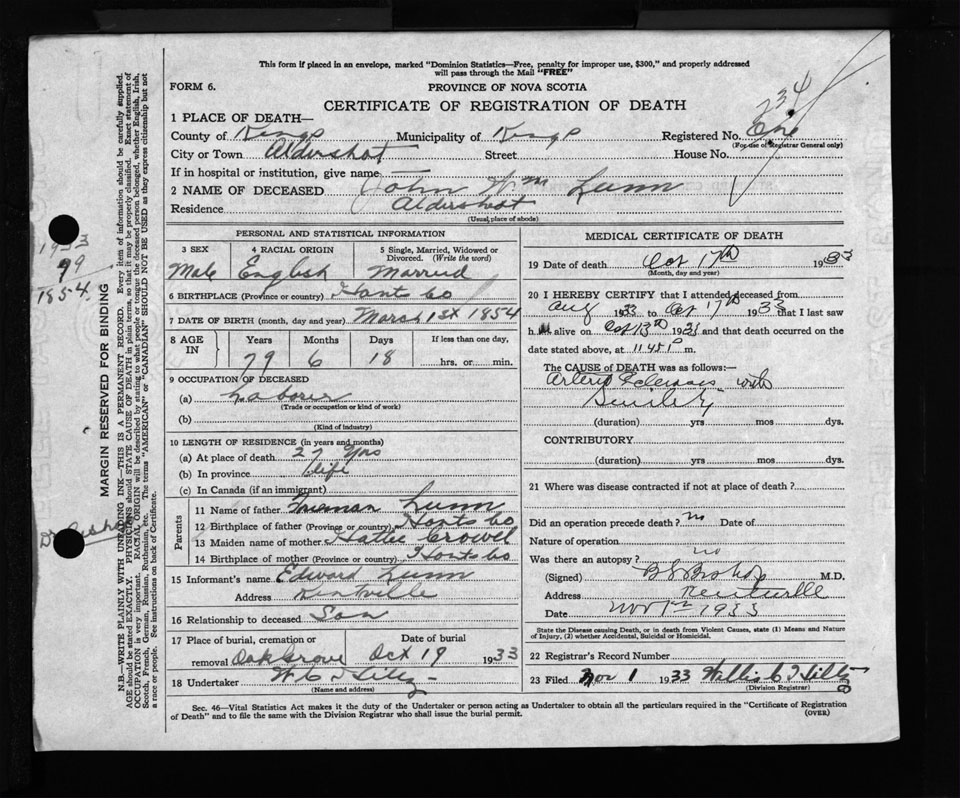 This form if placed in an envelope, marked "Dominion Statistics—Free, penalty for improper use, $300," and properly addressed
will pass through the Mail "FREE"
FORM 6.
PROVINCE OF NOVA SCOTIA
234
CERTIFICATE OF REGISTRATION OF DEATH
1 PLACE OF DEATH—
County of Kings Municipality of Kings Registered No.
(For use of Registrar General only)
City or Town Aldershot Street House No.
If in hospital or institution, give name
2 NAME OF DECEASED John Wm Lunn
Residence Aldershot
(Usual place of abode)
PERSONAL AND STATISTICAL INFORMATION
3 SEX 4 RACIAL ORIGIN 5 Single, Married, Widowed or
Divorced. (Write the word)
Male English Married
6 BIRTHPLACE (Province or country) Hants Co
7 DATE OF BIRTH (month, day and year) March 1st 1854
8 AGE IN Years Months Days If less than one day,
79 6 18 hrs. or min.
9 OCCUPATION OF DECEASED
(a) Laborer
(Trade or occupation or kind of work)
(b)
(Kind of industry)
10 LENGTH OF RESIDENCE (in years and months)
(a) At place of death 27 yrs
(b) In province life
(c) In Canada (if an immigrant)
Parents
11 Name of father Freeman Lunn
12 Birthplace of father (Province or country) Hants Co
13 Maiden name of mother Hattie Crowel
14 Birthplace of mother (Province or country) Hants Co
15 Informant's name Edward Lunn
Address Kentville
16 Relationship to deceased Son
17 Place of burial, cremation or Date of burial
removal Oak Grove Oct 19 1933
18 Undertaker W C Hiltz
(Name and address)
MEDICAL CERTIFICATE OF DEATH
19 Date of death Oct 17th 1933
(Month, day and year)
20 I HEREBY CERTIFY that I attended deceased from
Aug 1933 to Oct 17th 1933 that I last saw
h im alive on Oct 13th 1933 and that death occurred on
date stated above, at 11 45 P m.
The CAUSE of DEATH was as follows:—
Arterio Sclerosis with
Senility
(duration) yrs mos dys.
CONTRIBUTORY
(duration) yrs mos dys.
21 Where was disease contracted if not at place of death?
Did an operation precede death? no Date of
Nature of operation
Was there an autopsy? no
(Signed) M.D.
Address Kentville
Date Nov 1st 1933
State the Disease causing Death, or in death from Violent Causes, state (1) Means and Nature
of Injury, (2) whether Accidental, Suicidal or Homicidal.
22 Registrar's Record Number
23 Filed Nov 1 1933 Willis C Hiltz
(Division Registrar)
Sec. 46—Vital Statistics Act makes it the duty of the Undertaker or person acting as Undertaker to obtain all the particulars required in the "Certificate of Registration
of Death" and to file the same with the Division Registrar who shall issue the burial permit.
(OVER)
MARGIN RESERVED FOR BINDING
N.B.—WRITE PLAINLY WITH UNFADING INK—THIS IS A PERMANENT RECORD. Every item of information should be carefully supplied.
AGE should be stated EXACTLY. PHYSICIANS should STATE CAUSE OF DEATH in plain terms, so that it may be properly classified. Exact statement of
OCCUPATION is very important. RACIAL ORIGIN will be described by stating to what people or tongue the deceased person belonged, whether English, Irish,
Scotch, French, German, Russian, Ruthenian, etc. The terms "AMERICAN" or "CANADIAN" SHOULD NOT BE USED as they express citizenship but not
a race or people. See instructions on back of Certificate.
1933
79
1854